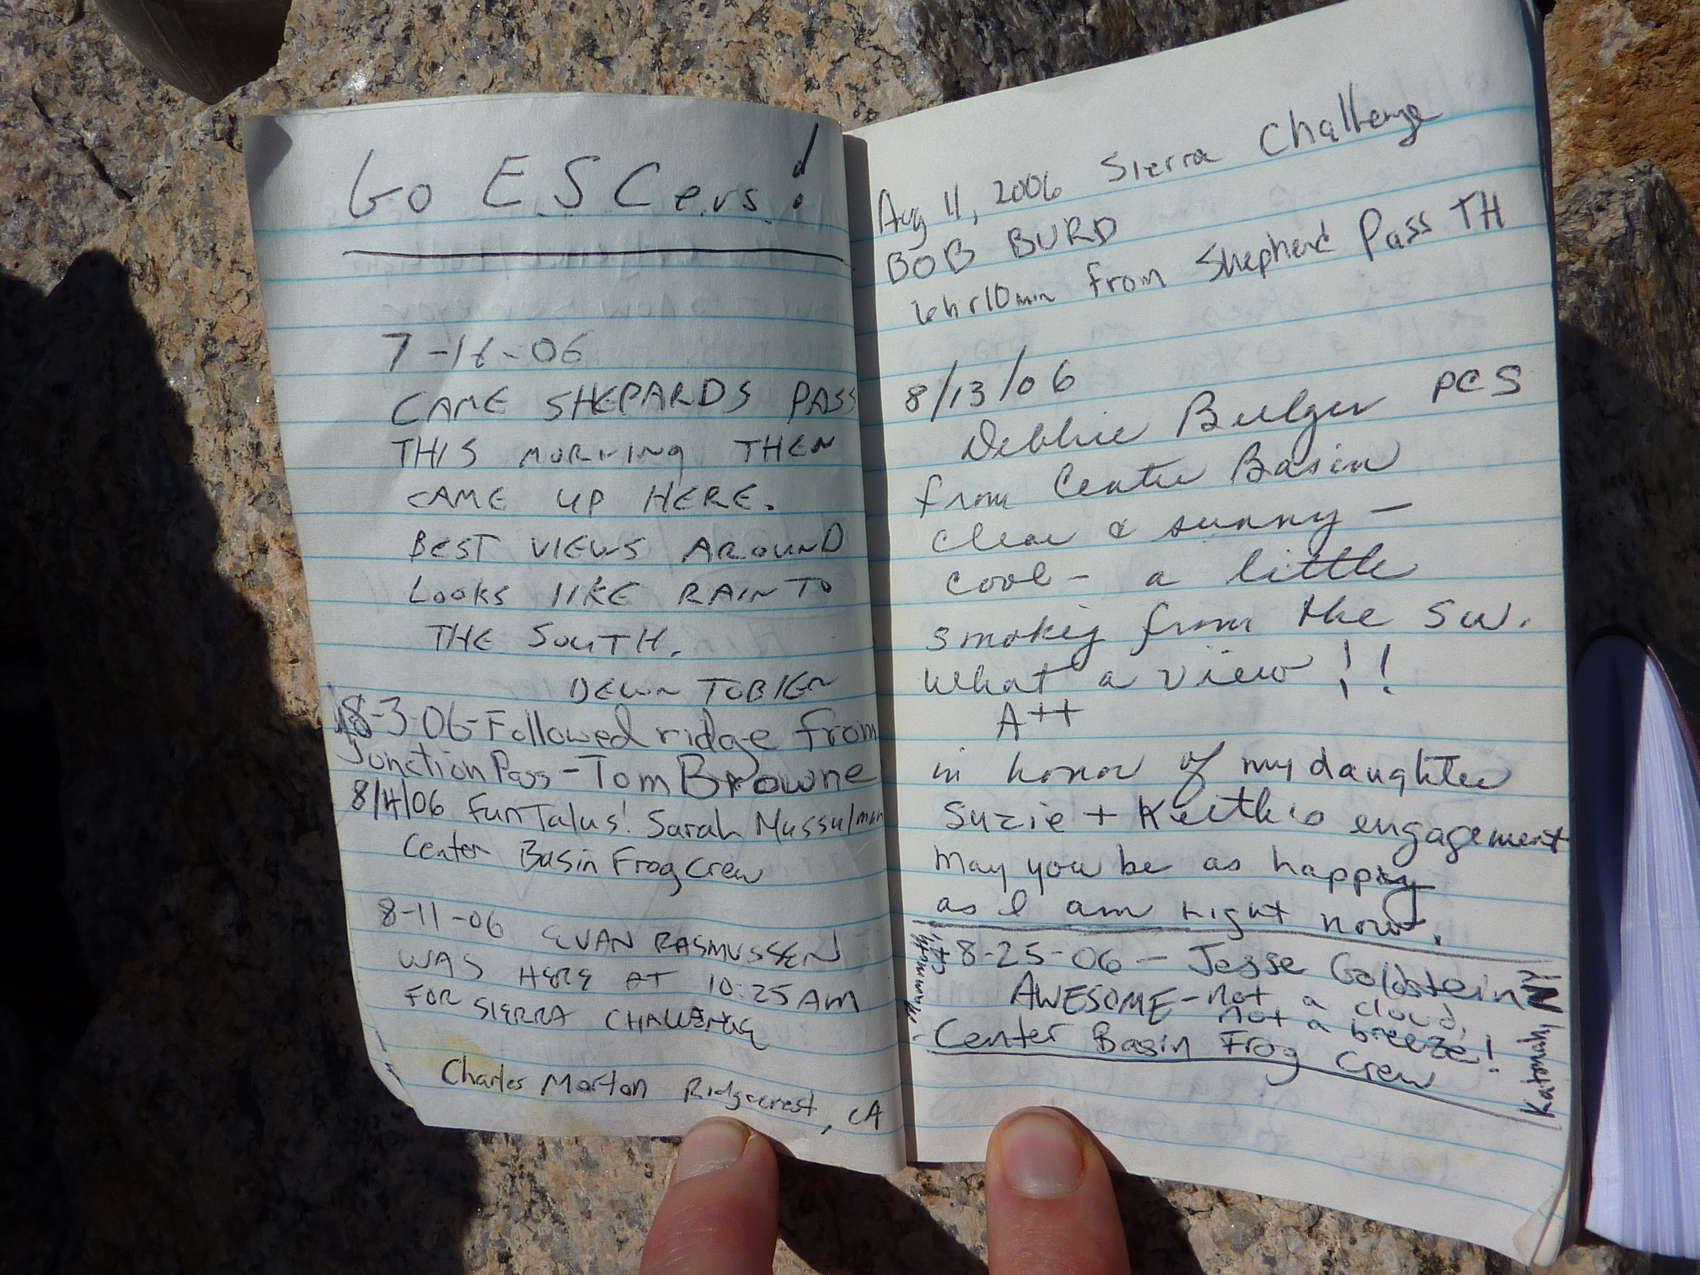 Go ESCers!
7-16-06
CAME SHEPARDS PASS
THIS MORNING THEN
CAME UP HERE.
BEST VIEWS AROUND
LOOKS LIKE RAIN TO
THE SOUTH.
TOBIEN
8-3-06-Followed ridge from
Junction Pass-Tom Browne
8/4/06 Fun Talus! Sarah Mussulman
Center Basin Frog Crew
8-11-06 EVAN RASMUSSEN
WAS HERE AT 10:25 AM
FOR SIERRA CHALLENGE
Charles Morton Ridgecrest, CA
Aug 11, 2006 Sierra Challenge
BOB BURD
hr10min from Shepherd Pass TH
8/13/06
Debbie Bulger PCS
from Center Basin
Clear & sunny -
cool - a little
smokey from the SW.
What a view!!
A++
in honor of my daughter
Suzie + Keith's engagement
May you be as happy
as I am right now.
Mammoth,
8-25-06 - Jesse Goldstein
AWESOME - not a cloud,
not a breeze!
Center Basin Frog Crew
Katonah, NY